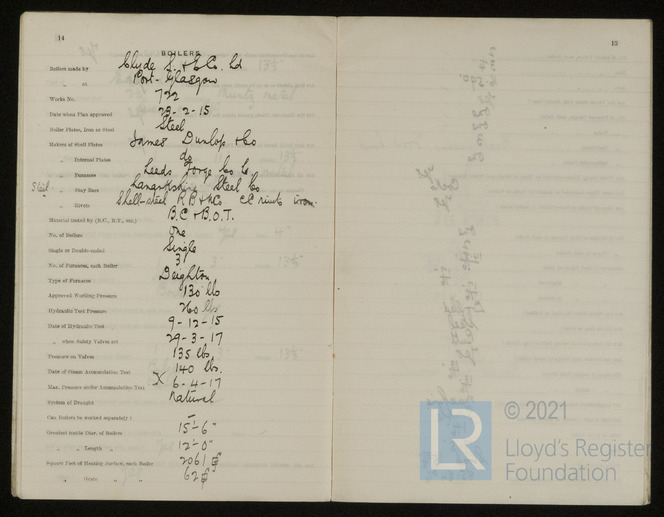 14
BOILERS
Boilers made by Clyde S. & E Co. Ld
" at Port-Glasgow
Works No. 722
Date when Plan approved 29-2-15
Boiler Plates, Iron or Steel Steel
Makers of Shell Plates James Dunlop & Co
" Internal Plates do
" Furnaces Leeds Forge Co Ld
Steel " Stay Bars Lanarkshire Steel Co
" Rivets Shell-steel R B & N Co CC rivets iron
Material tested by (B.C., B.T., etc.) B.C & B.O.T.
No. of Boilers One
Single or Double-ended Single
No. of Furnaces, each Boiler 3
Type of Furnaces Deighton
Approved Working Pressure 130 lb
Hydraulic Test Pressure 260 lbs
Date of Hydraulic Test 9-12-15
" when Safety Valves set 29-3-17
Pressure on Valves 135 lbs.
Date of Steam Accumulation Test 140 lbs.
Max. Pressure under Accumulation Test 6-4-17
System of Draught Natural
Can Boilers be worked separately? -
Greatest inside Diar. of Boilers 15'-6"
" " Length " 12'-0"
Square Feet of Heating Surface, each Boiler 2061
" Grate " " 62
LR
© 2021
Lloyd's Register
Foundation